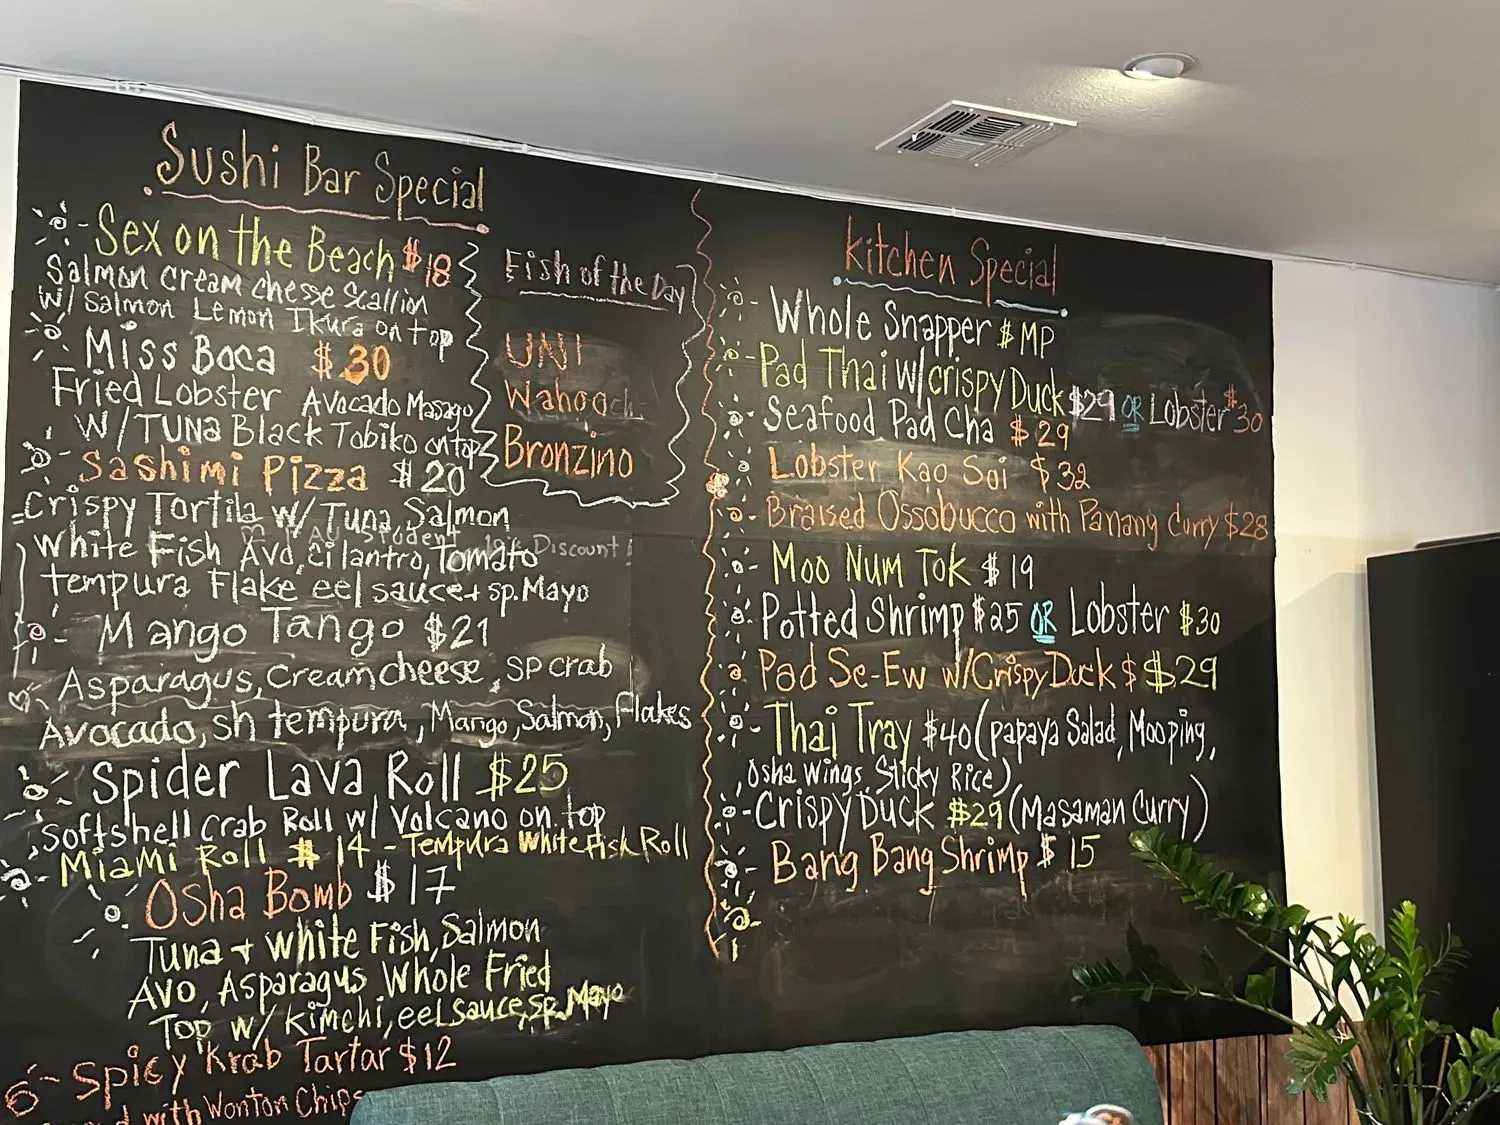 Sushi Bar Special
Sex on the Beach $18
Salmon cream chesse scallion
w/ Salmon Lemon Ikura on top
Miss Boca $30
Fried Lobster Avocado Masago
W/TUNA Black Tobiko on top
Sashimi Pizza $20
Crispy Tortila w/ Tuna, Salmon
White Fish Avo, cilantro, Tomato
tempura Flake eel sauce + sp. Mayo
Mango Tango $21
Asparagus, Cream cheese, sp crab
Avocado, sh tempura, Mango, Salmon, Flakes
Spider Lava Roll $25
Softshell crab Roll w/ Volcano on top
Miami Roll $14 - Tempura White Fish Roll
Osha Bomb $17
Tuna + White Fish, Salmon
Avo, Asparagus Whole Fried
Top w/ Kimchi, eel sauce, sp. Mayo
Spicy Krab Tartar $12
with Wonton Chips
Fish of the Day
UNI
Wahoo
Bronzino
Student 10% Discount!
Kitchen Special
Whole Snapper $ MP
Pad Thai w/ crispy Duck $29 OR Lobster $30
Seafood Pad Cha $29
Lobster Kao Soi $32
Braised Ossobucco with Panang Curry $28
Moo Num Tok $19
Potted Shrimp $25 OR Lobster $30
Pad Se-Ew w/ Crispy Duck $ $29
Thai Tray $40 (papaya Salad, Mooping,
Osha Wings, Sticky Rice)
Crispy Duck $29 (Masaman Curry)
Bang Bang Shrimp $15